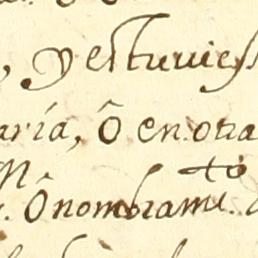 , y estuvies
aría, Ô en otra
Ônombramᵗᵒ.